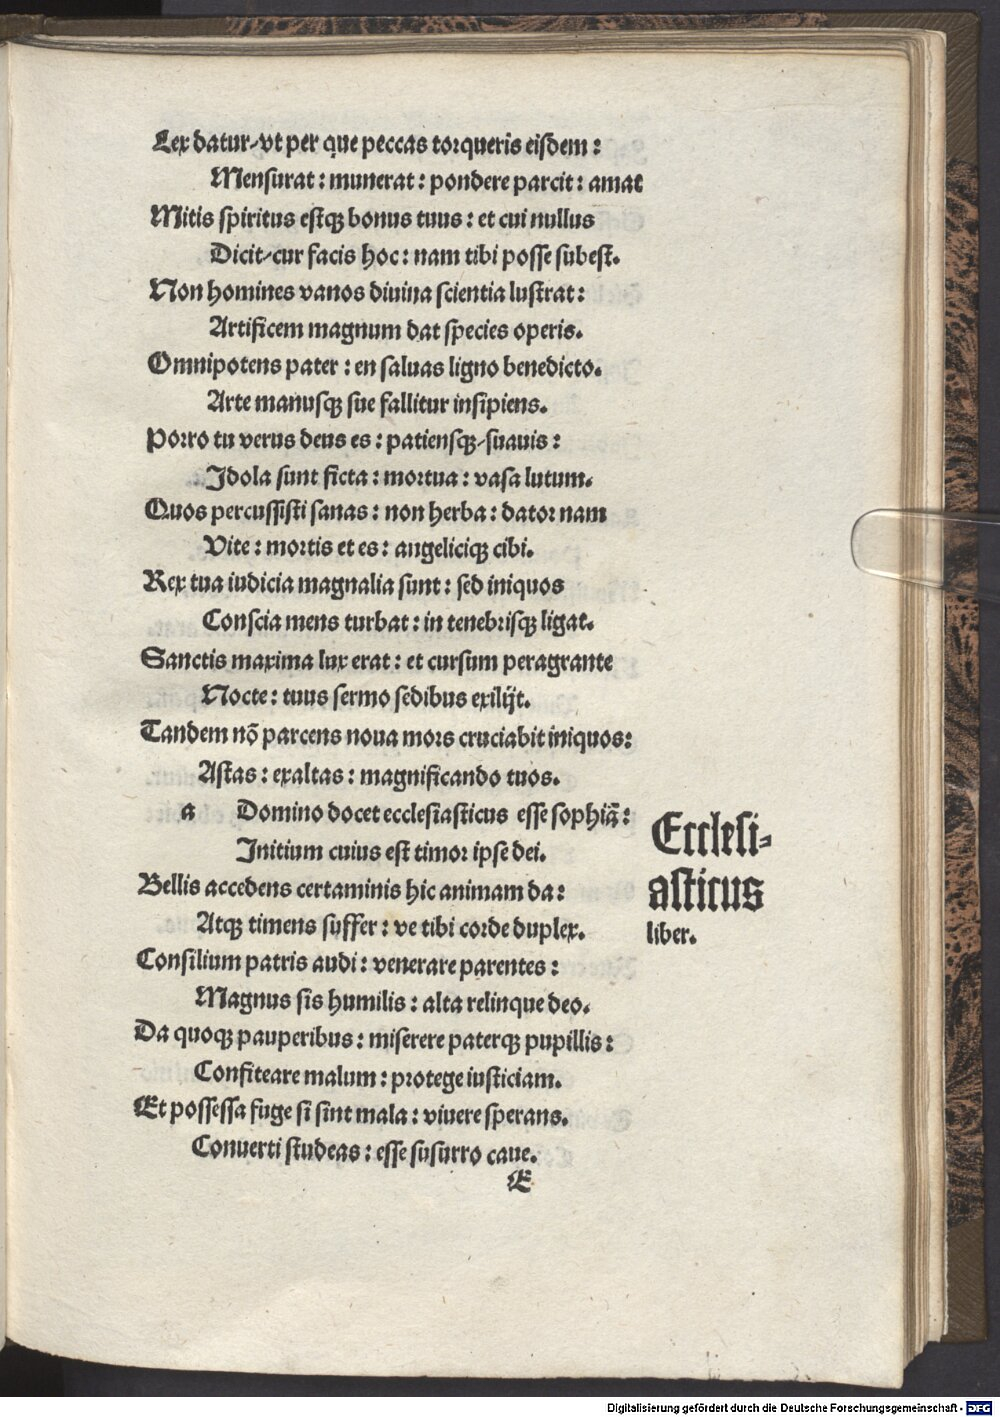 Lex datur/vt per que peccas torqueris eisdem:
Mensurat: munerat: pondere parcit: amat
Mitis spiritus estqꝫ bonus tuus: et cui nullus
Dicit/cur facis hoc: nam tibi posse subest.
Non homines vanos diuina scientia lustrat:
Artificem magnum dat species operis.
Omnipotens pater: en saluas ligno benedicto.
Arte manusqꝫ sue fallitur insipiens.
Porro tu verus deus es: patiensqꝫ/suauis:
Idola sunt ficta: mortua: vasa lutum.
Quos percussisti sanas: non herba: dator nam
Vite: mortis et es: angeliciqꝫ cibi.
Rex tua iudicia magnalia sunt: sed iniquos
Conscia mens turbat: in tenebrisqꝫ ligat.
Sanctis maxima lux erat: et cursum peragrante
Nocte: tuus sermo sedibus exilijt.
Tandem nō parcens noua mors cruciabit iniquos:
Astas: exaltas: magnificando tuos.
a Domino docet ecclesiasticus esse sophiā:
Initium cuius est timor ipse dei.
Bellis accedens certaminis hic animam da:
Atqꝫ timens suffer: ve tibi corde duplex.
Consilium patris audi: venerare parentes:
Magnus sis humilis: alta relinque deo.
Da quoqꝫ pauperibus: miserere paterqꝫ pupillis:
Confiteare malum: protege iusticiam.
Et possessa fuge si sint mala: viuere sperans.
Conuerti studeas: esse susurro caue.
E
Ecclesi-
asticus
liber.
Digitalisierung gefördert durch die Deutsche Forschungsgemeinschaft - DFG